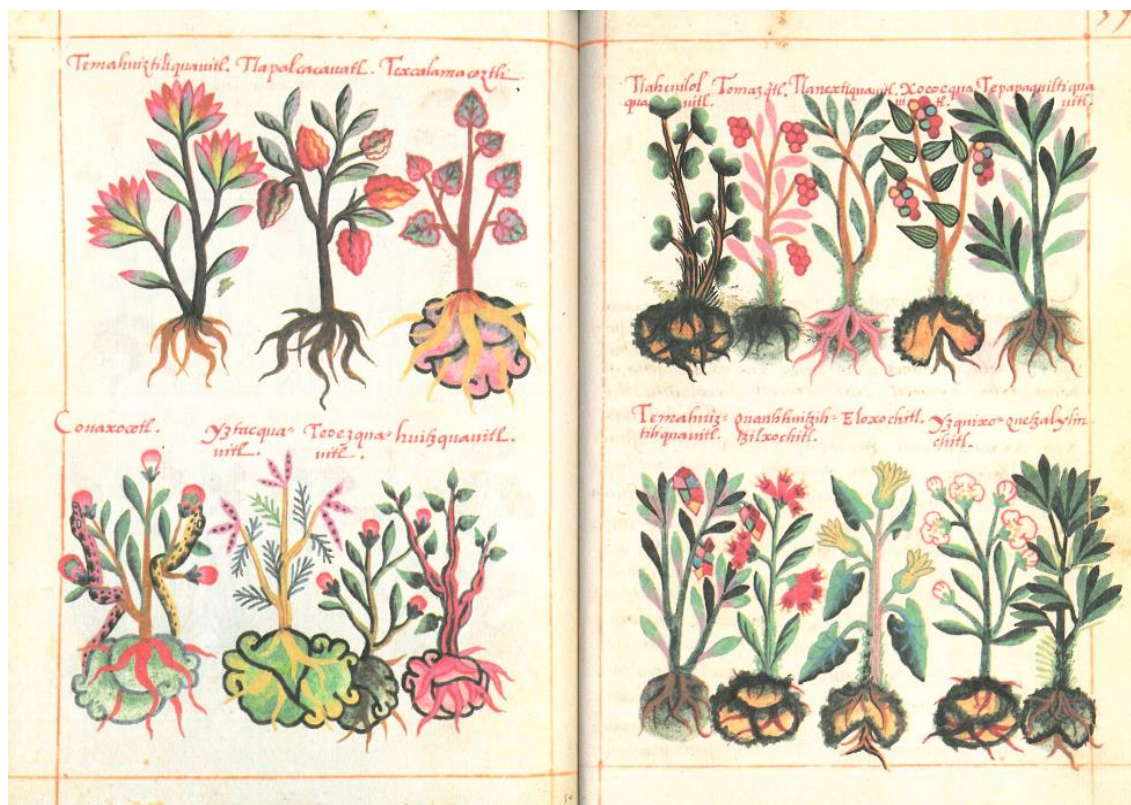 Temahuiztiliquauitl. Tlapalcacauatl. Texcalamacoztli
Couaxocotl.
Yztacqua=
uitl.
Teoezqua=
uitl.
huitzquauitl.
37
Tlahcuilol
quauitl.
Tomazqtl.
Tlanextiquauitl.
Xococqua=
uitl.
Tepapaquiltiqua
uitl.
Temahuiz=
tiliquauitl.
quauhhuitzih=
tzilxochitl.
Eloxochitl.
Yzquixo=
chitl.
quetzalylin.